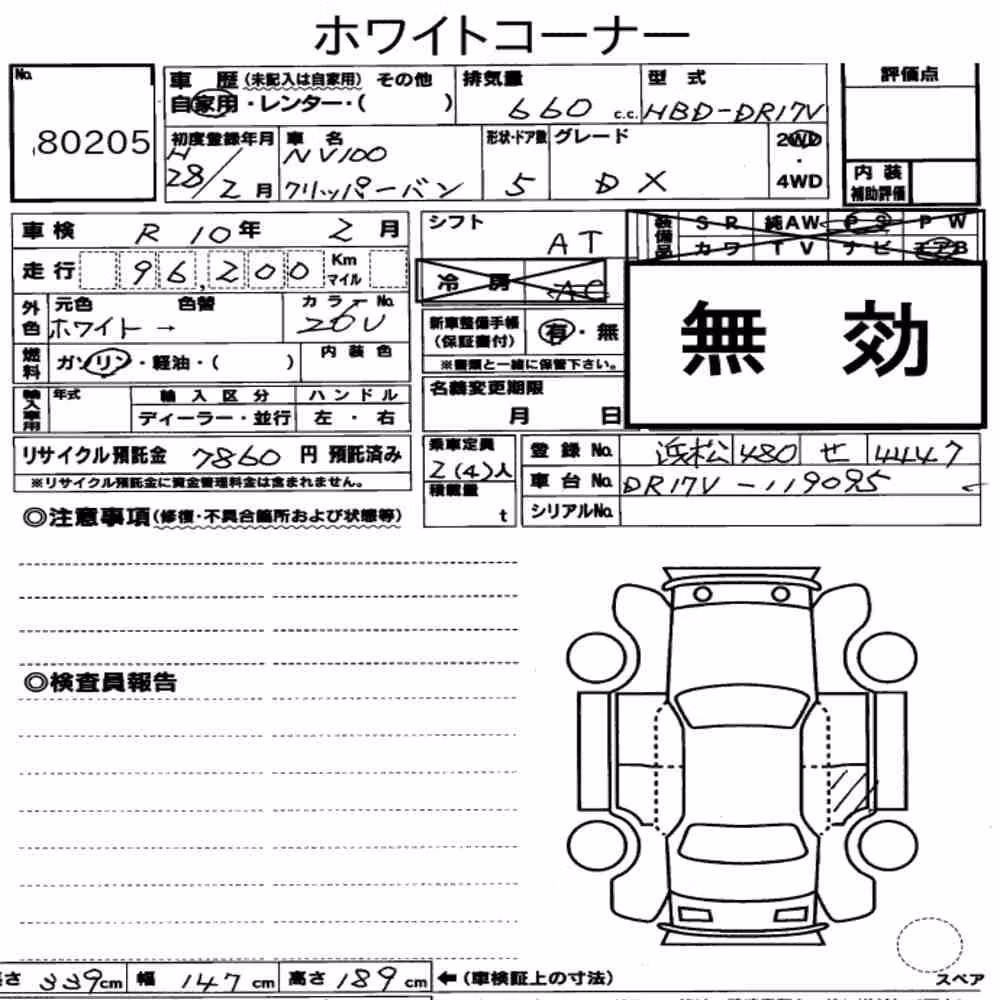 ホワイトコーナー
No. 80205
車歴(未記入は自家用) その他 排気量 型式 評価点
自家用・レンター・( ) 660 c.c. HBD-DR17V
初度登録年月 車名 形状・ドア数 グレード 2WD
H 28/2月 NV100 クリッパーバン 5 DX ・ 4WD
内装
補助評価
車検 R 10年 2月 シフト AT 装備品 SR 純AW PS PW
カワ TV ナビ エアB
走行 96,200 Km マイル 冷房 AC
無効
外色 元色 色替 カラーNo.
ホワイト → 26U
新車整備手帳(保証書付) 有・無
※書類と一緒に保管下さい。
燃料 ガソリン・軽油・( ) 内装色
名義変更期限
月 日
輸入車用 年式 輸入区分 ハンドル
ディーラー・並行 左・右
リサイクル預託金 7860 円 預託済み
※リサイクル預託金に資金管理料金は含まれません。
乗車定員 2(4)人
積載量 t
登録No. 浜松 480 せ 4447
車台No. DR17V-119095
シリアルNo.
◎注意事項(修復・不具合箇所および状態等)
◎検査員報告
スペア
長さ 339cm 幅 147cm 高さ 189cm ←(車検証上の寸法)